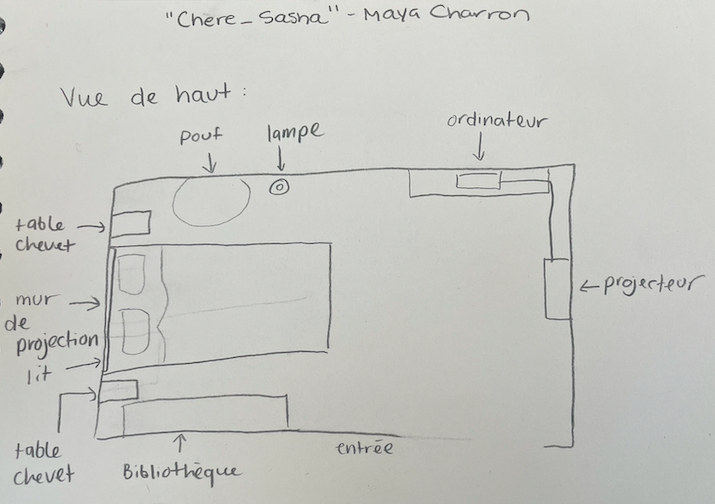 "Chère_Sasha" - Maya Charron
Vue de haut :
pouf
lampe
ordinateur
table
chevet
mur
de
projection
lit
projecteur
table
chevet
Bibliothèque
entrée